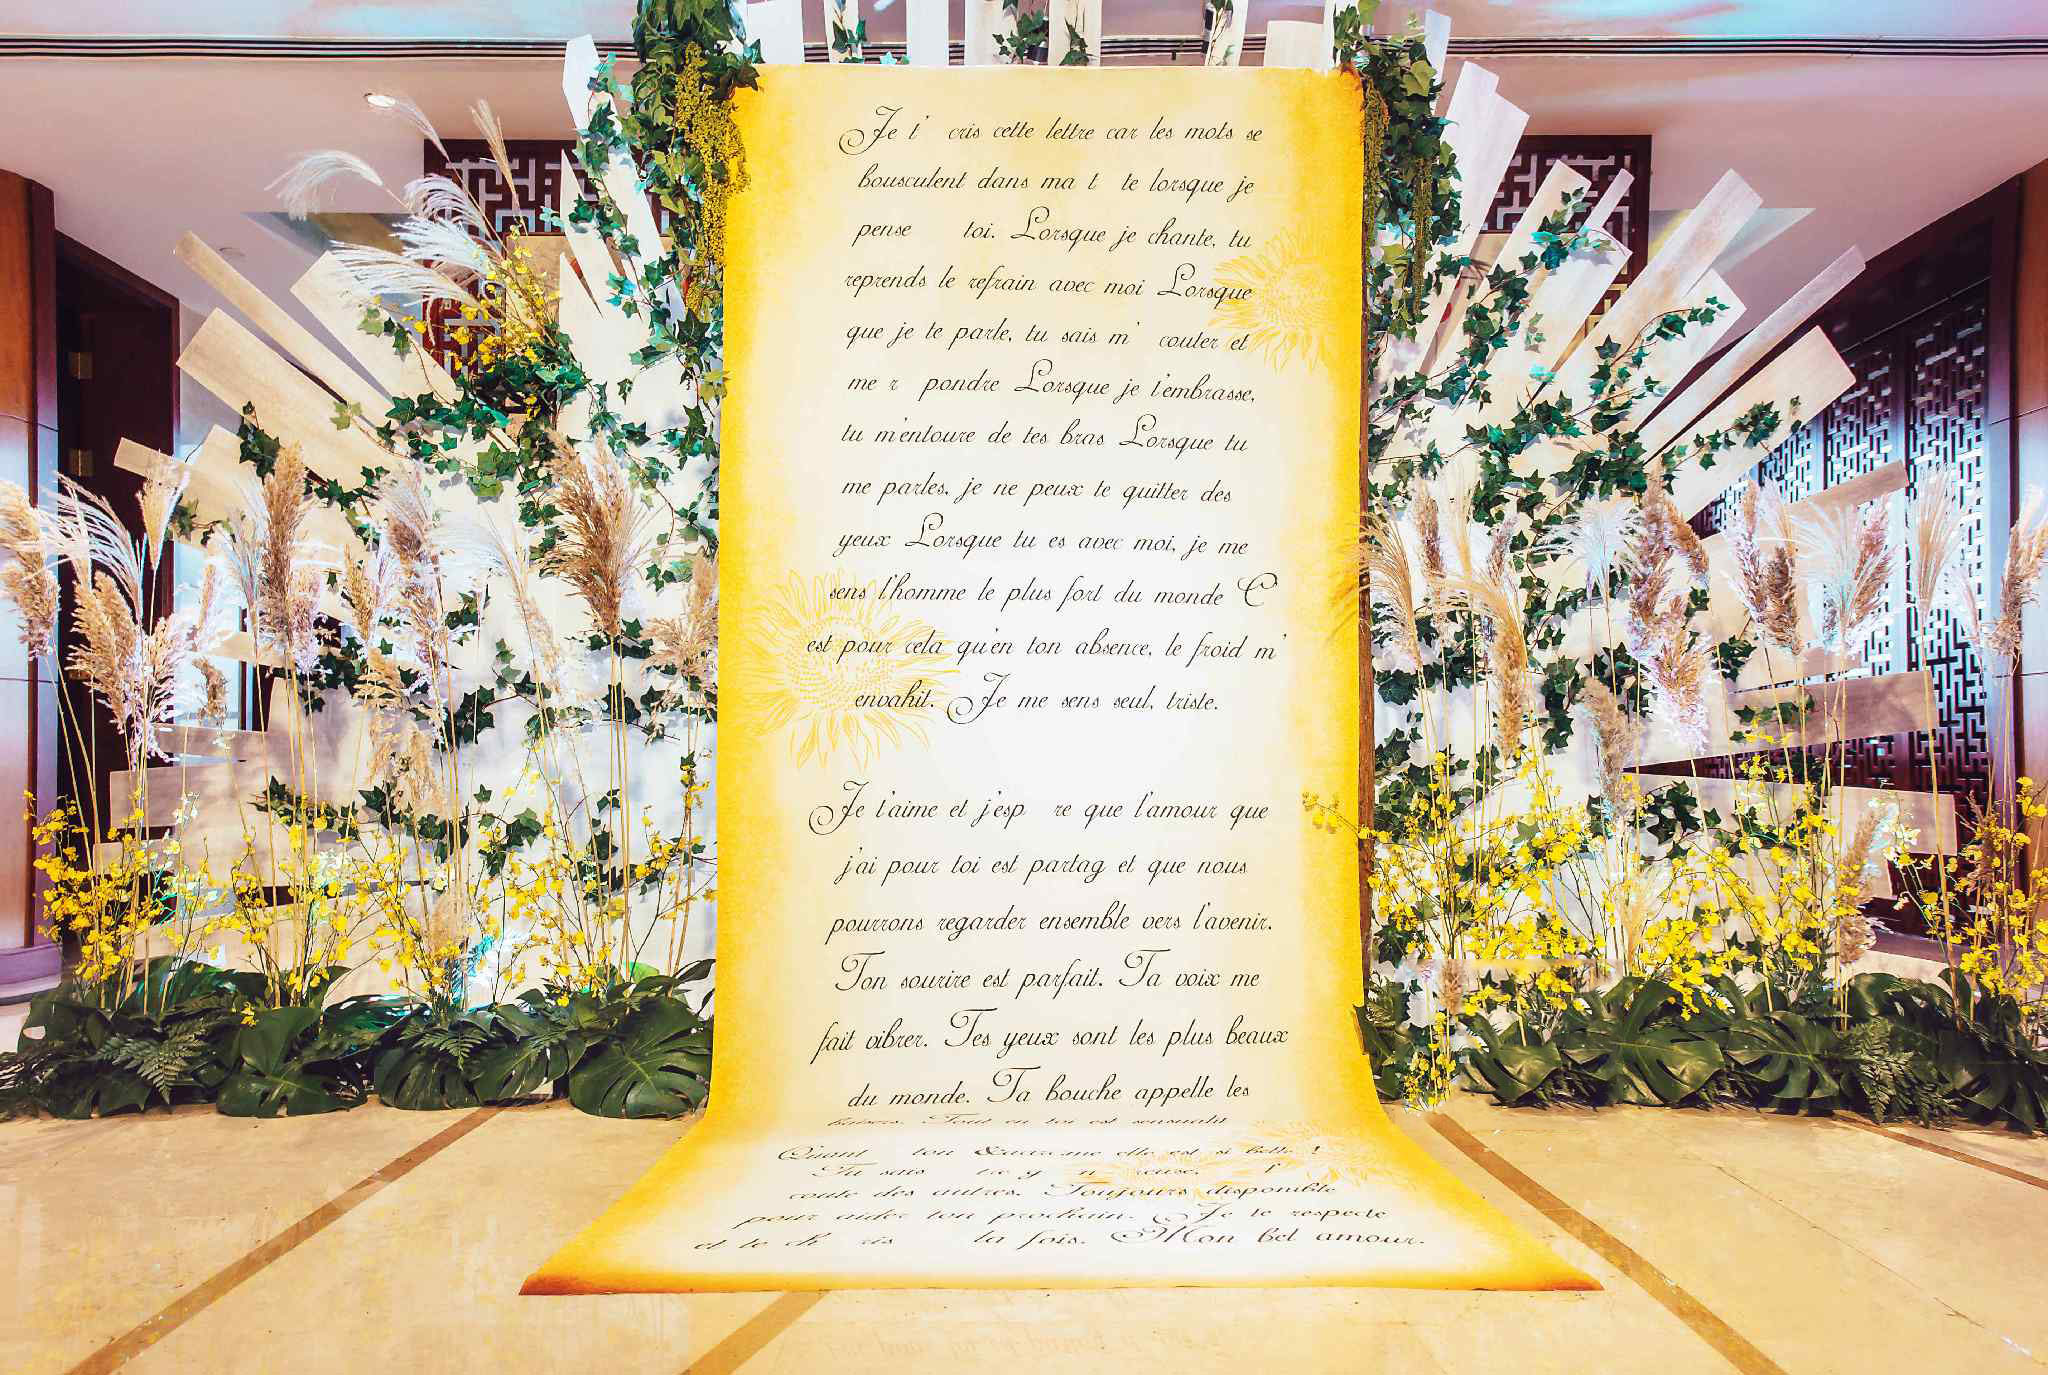 Je t' cris cette lettre car les mots se
bousculent dans ma t te lorsque je
pense toi. Lorsque je chante, tu
reprends le refrain avec moi Lorsque
que je te parle, tu sais m' couter et
me r pondre Lorsque je t'embrasse,
tu m'entoure de tes bras Lorsque tu
me parles, je ne peux te quitter des
yeux Lorsque tu es avec moi, je me
sens l'homme le plus fort du monde C'
est pour cela qu'en ton absence, le froid m'
envahit. Je me sens seul, triste.
Je t'aime et j'esp re que l'amour que
j'ai pour toi est partag et que nous
pourrons regarder ensemble vers l'avenir.
Ton sourire est parfait. Ta voix me
fait vibrer. Tes yeux sont les plus beaux
du monde. Ta bouche appelle les
baisers. Tout en toi est sensualit
Quant ton elle est si belle !
Tu sais re g n reuse, l'
coute des autres. Toujours disponible
pour aider ton prochain. Je te respecte
et te ch ris la fois. Mon bel amour.